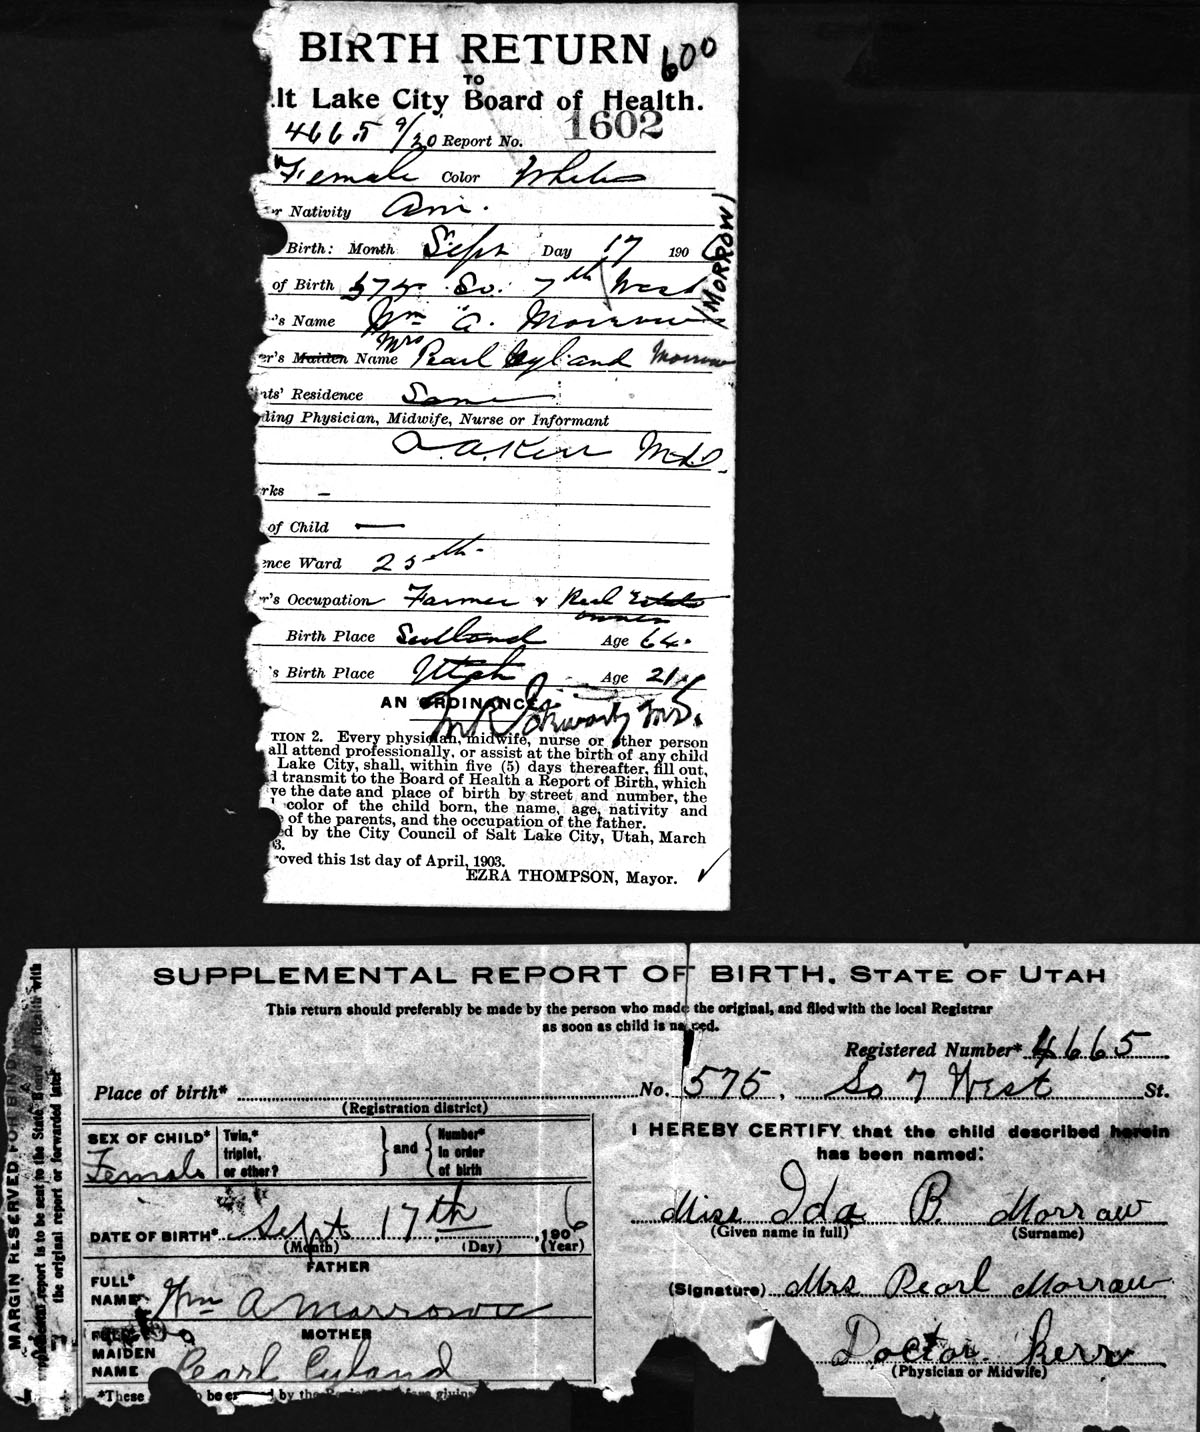 BIRTH RETURN 600
TO
lt Lake City Board of Health.
4665 9/20 Report No. 1602
Female Color White
r Nativity Am.
Birth: Month Sept Day 17 1906
of Birth 575 So. 7th West
(MORROW)
's Name Wm A. Morrow
er's Maiden Name Mrs Pearl Cyland Morrow
nts' Residence Same
ding Physician, Midwife, Nurse or Informant
A. Kerr M.D.
rks –
of Child —
ence Ward 25th
r's Occupation Farmer & Real Estate
owner
Birth Place Scotland Age 64.
's Birth Place Utah Age 21
AN ORDINANCE
TION 2. Every physician, midwife, nurse or other person
all attend professionally, or assist at the birth of any child
Lake City, shall, within five (5) days thereafter, fill out,
d transmit to the Board of Health a Report of Birth, which
ve the date and place of birth by street and number, the
color of the child born, the name, age, nativity and
e of the parents, and the occupation of the father.
ed by the City Council of Salt Lake City, Utah, March
3.
roved this 1st day of April, 1903.
EZRA THOMPSON, Mayor.
SUPPLEMENTAL REPORT OF BIRTH, STATE OF UTAH
This return should preferably be made by the person who made the original, and filed with the local Registrar
as soon as child is named.
Registered Number* 4665
Place of birth* No. 575, So 7 West St.
(Registration district)
SEX OF CHILD* Female Twin,* triplet, or other? } and { Number* in order of birth
I HEREBY CERTIFY that the child described herein
has been named:
Miss Ida B. Morraw
(Given name in full) (Surname)
DATE OF BIRTH* Sept 17th, 1906
(Month) (Day) (Year)
FATHER
FULL* NAME Wm A Marrow
(Signature) Mrs Pearl Morraw
MOTHER
MAIDEN NAME Pearl Cyland
Doctor Kerr
(Physician or Midwife)
*These to be by the
MARGIN RESERVED FOR BIND
report is to be sent to the State Board of Health with
the original report or forwarded later